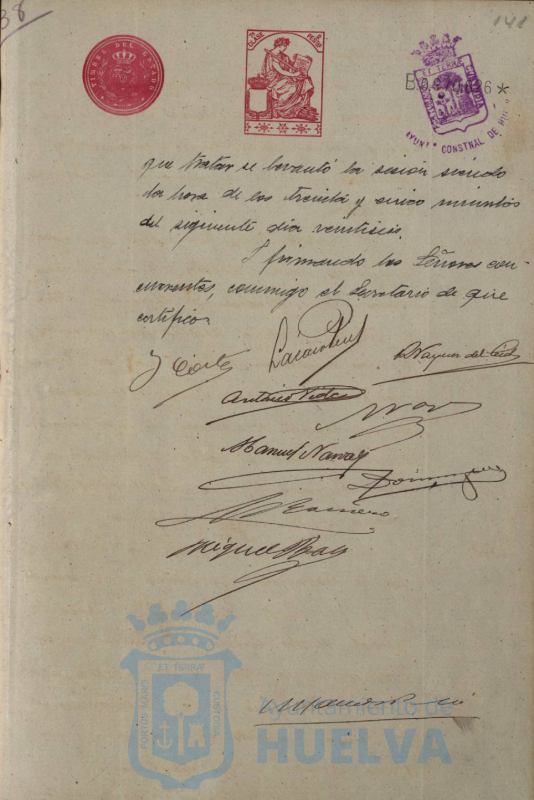 38
141
TIMBRE DEL ESTADO
CLASE 8ª
ET TERRÆ
AYUNTº CONSTNAL DE HUELVA
que tratar se levantó la sesión siendo
la hora de las treinta y cinco minutos
del siguiente dia veintiseis.
Y firmando los Señores con-
currentes, conmigo el Secretario de que
certifico.
J Corte
R Vazquez del Cid
Antonio Vides
Manuel Navarro
Dominguez
M Romero
Miguel Blas
ET TERRÆ
PORTUS MARIS
CUSTODIA
Ayuntamiento de
HUELVA